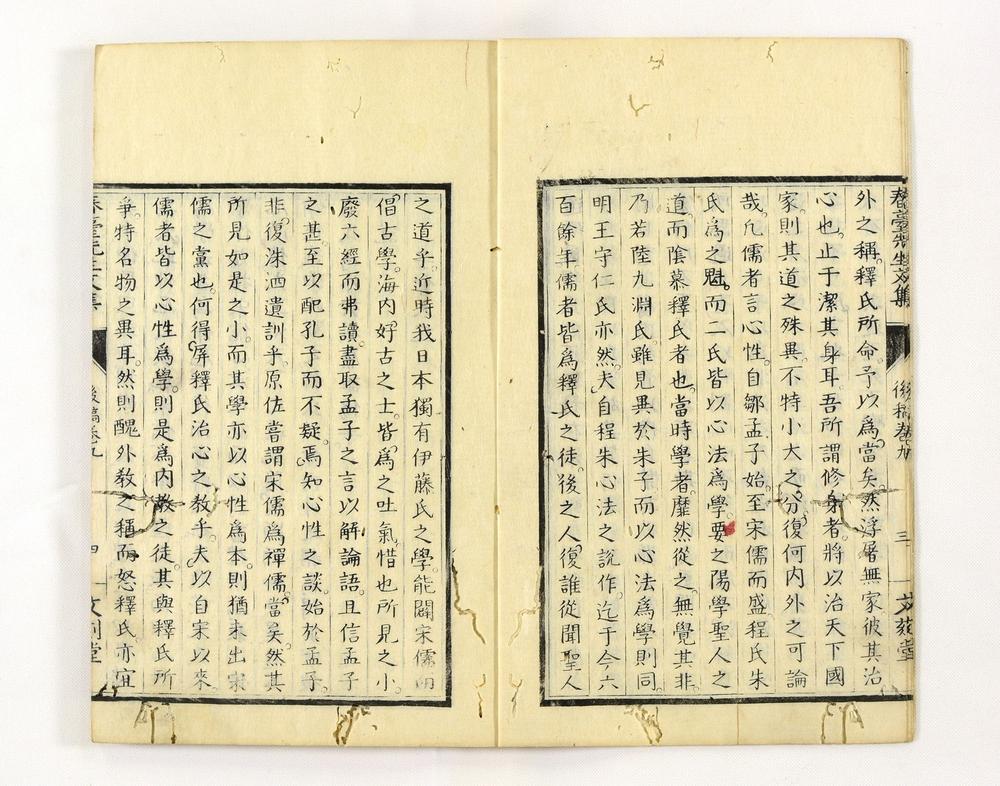 春臺先生文集
後稿卷九
三
文刻堂
外之稱。釋氏所命。予以爲當矣。然浮屠無家。彼其治
心也。止于潔其身耳。吾所謂修身者。將以治天下國
家。則其道之殊異。不特小大之分。復何内外之可論
哉。凡儒者言心性。自鄒孟子始。至宋儒而盛。程氏朱
氏爲之魁。而二氏皆以心法爲學。要之陽學聖人之
道。而陰慕釋氏者也。當時學者。靡然從之。無覺其非。
乃若陸九淵氏。雖見異於朱子。而以心法爲學則同。
明王守仁氏亦然。夫自程朱心法之說作。迄于今六
百餘年。儒者皆爲釋氏之徒。後之人。復誰從聞聖人
之道乎。近時我日本。獨有伊藤氏之學。能闢宋儒而
倡古學。海内好古之士。皆爲之吐氣。惜也所見之小。
廢六經而弗讀。盡取孟子之言以解論語。且信孟子
之甚。至以配孔子而不疑。焉知心性之談。始於孟子。
非復洙泗遺訓乎。原佐嘗謂宋儒爲禪儒。當矣。然其
所見如是之小。而其學亦以心性爲本。則猶未出宋
儒之黨也。何得屏釋氏治心之教乎。夫以自宋以來
儒者。皆以心性爲學。則是爲内教之徒。其與釋氏所
爭。特名物之異耳。然則醜外教之稱。而怒釋氏。亦宜
春臺先生文集
後稿卷九
四
文刻堂